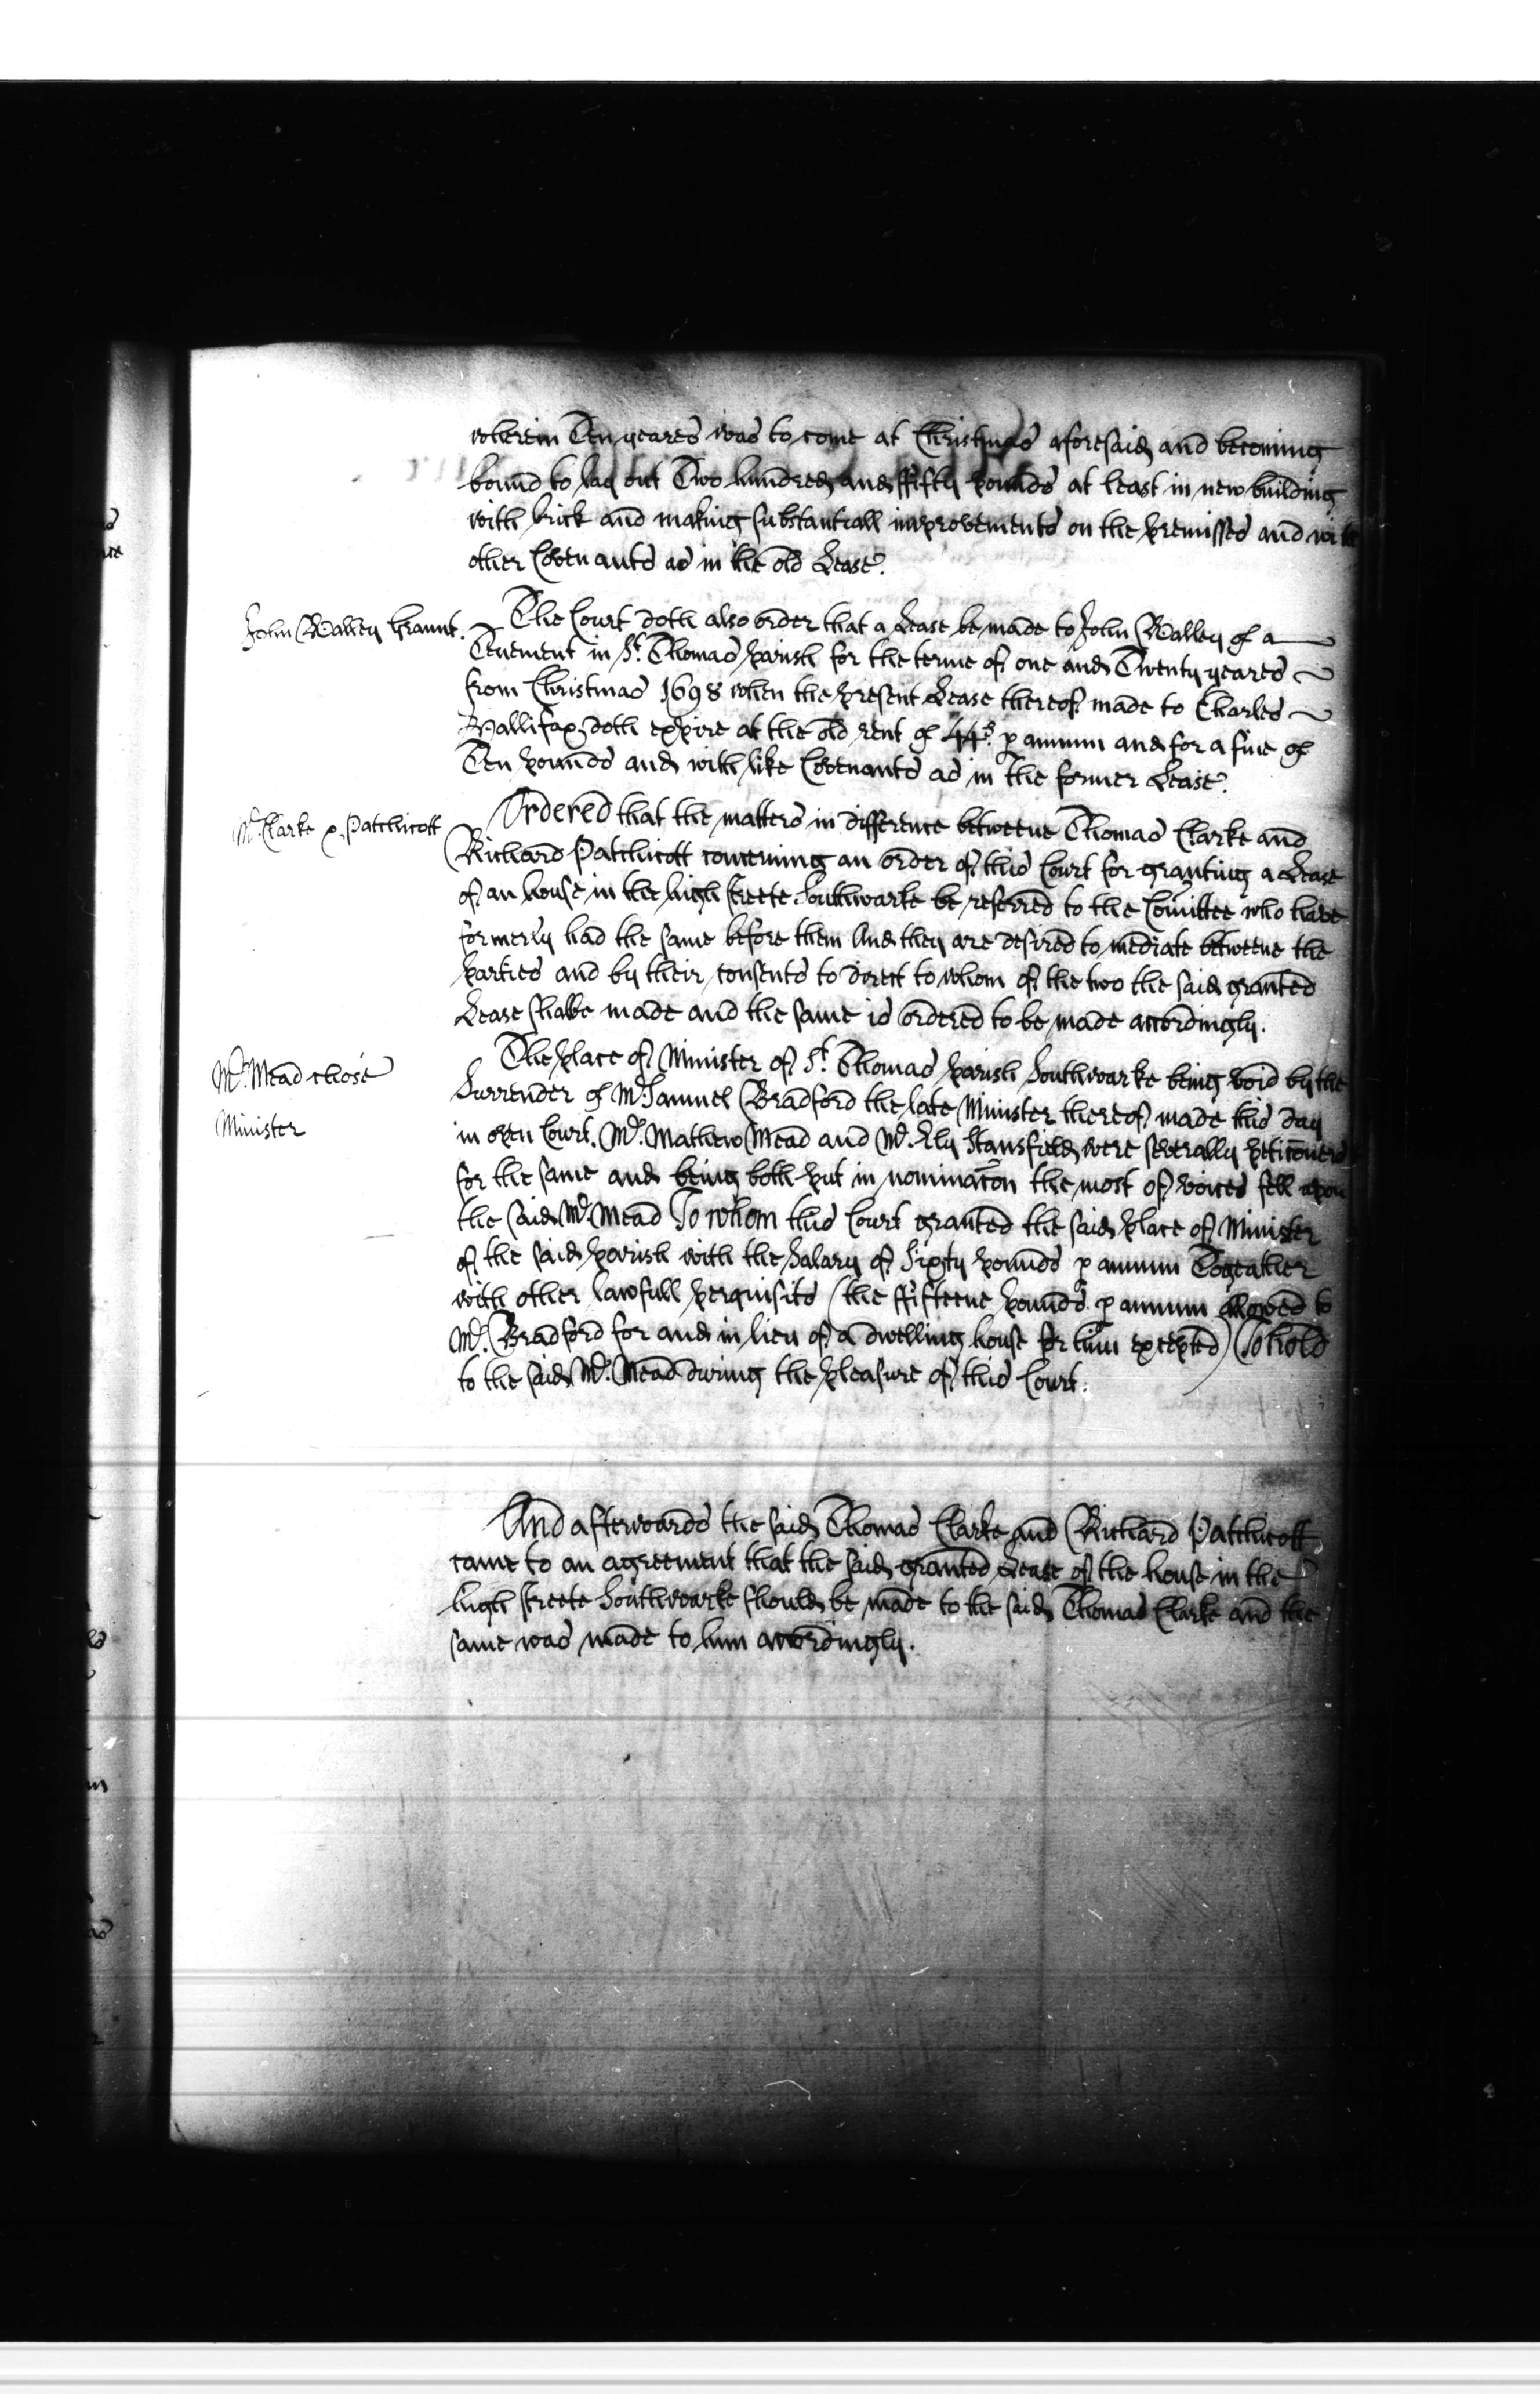 wherein Ten yeares was to come at Christmas aforesaid and becoming
bound to lay out Two hundred and ffifty pounds at least in new building
with brick and making substantiall improvements on the premisses and with
other Covenants as in the old Lease.
John Walley Graunt.
The Court doth also order that a Lease be made to John Walley of a
Tenement in St. Thomas parish for the terme of one and Twenty yeares
from Christmas 1698 when the present Lease thereof made to Charles
Hallifax doth expire at the old rent of 44s. p annum and for a fine of
Ten pounds and with like Covenants as in the former Lease.
Mr. Clarke & Patchcott
Ordered that the matters in difference betweene Thomas Clarke and
Richard Patchcott concerning an order of this Court for granting a Lease
of an house in the high streete Southwarke be referred to the Comittee who have
formerly had the same before them And they are desired to mediate betweene the
parties and by their consents to direct to whom of the two the said granted
Lease shalbe made and the same is ordered to be made accordingly.
Mr. Mead chose
Minister
The place of Minister of St. Thomas parish Southwarke being void by the
Surrender of Mr. Samuel Bradford the late Minister thereof made this day
in open Court. Mr. Mathew Mead and Mr. Ely Stansfield were severally peticoners
for the same and being both put in nominacon the most of voices fell upon
the said Mr. Mead To whom this Court granted the said place of Minister
of the said parish with the Salary of Sixty pounds p annum Togeather
with other lawfull perquisits (the ffifteene pounds p annum allowed to
Mr. Bradford for and in lieu of a dwelling house for him excepted) To hold
to the said Mr. Mead during the pleasure of this Court.
And afterwards the said Thomas Clarke and Richard Patchcott
came to an agreement that the said granted Lease of the house in the
high streete Southwarke should be made to the said Thomas Clarke and the
same was made to him accordingly.